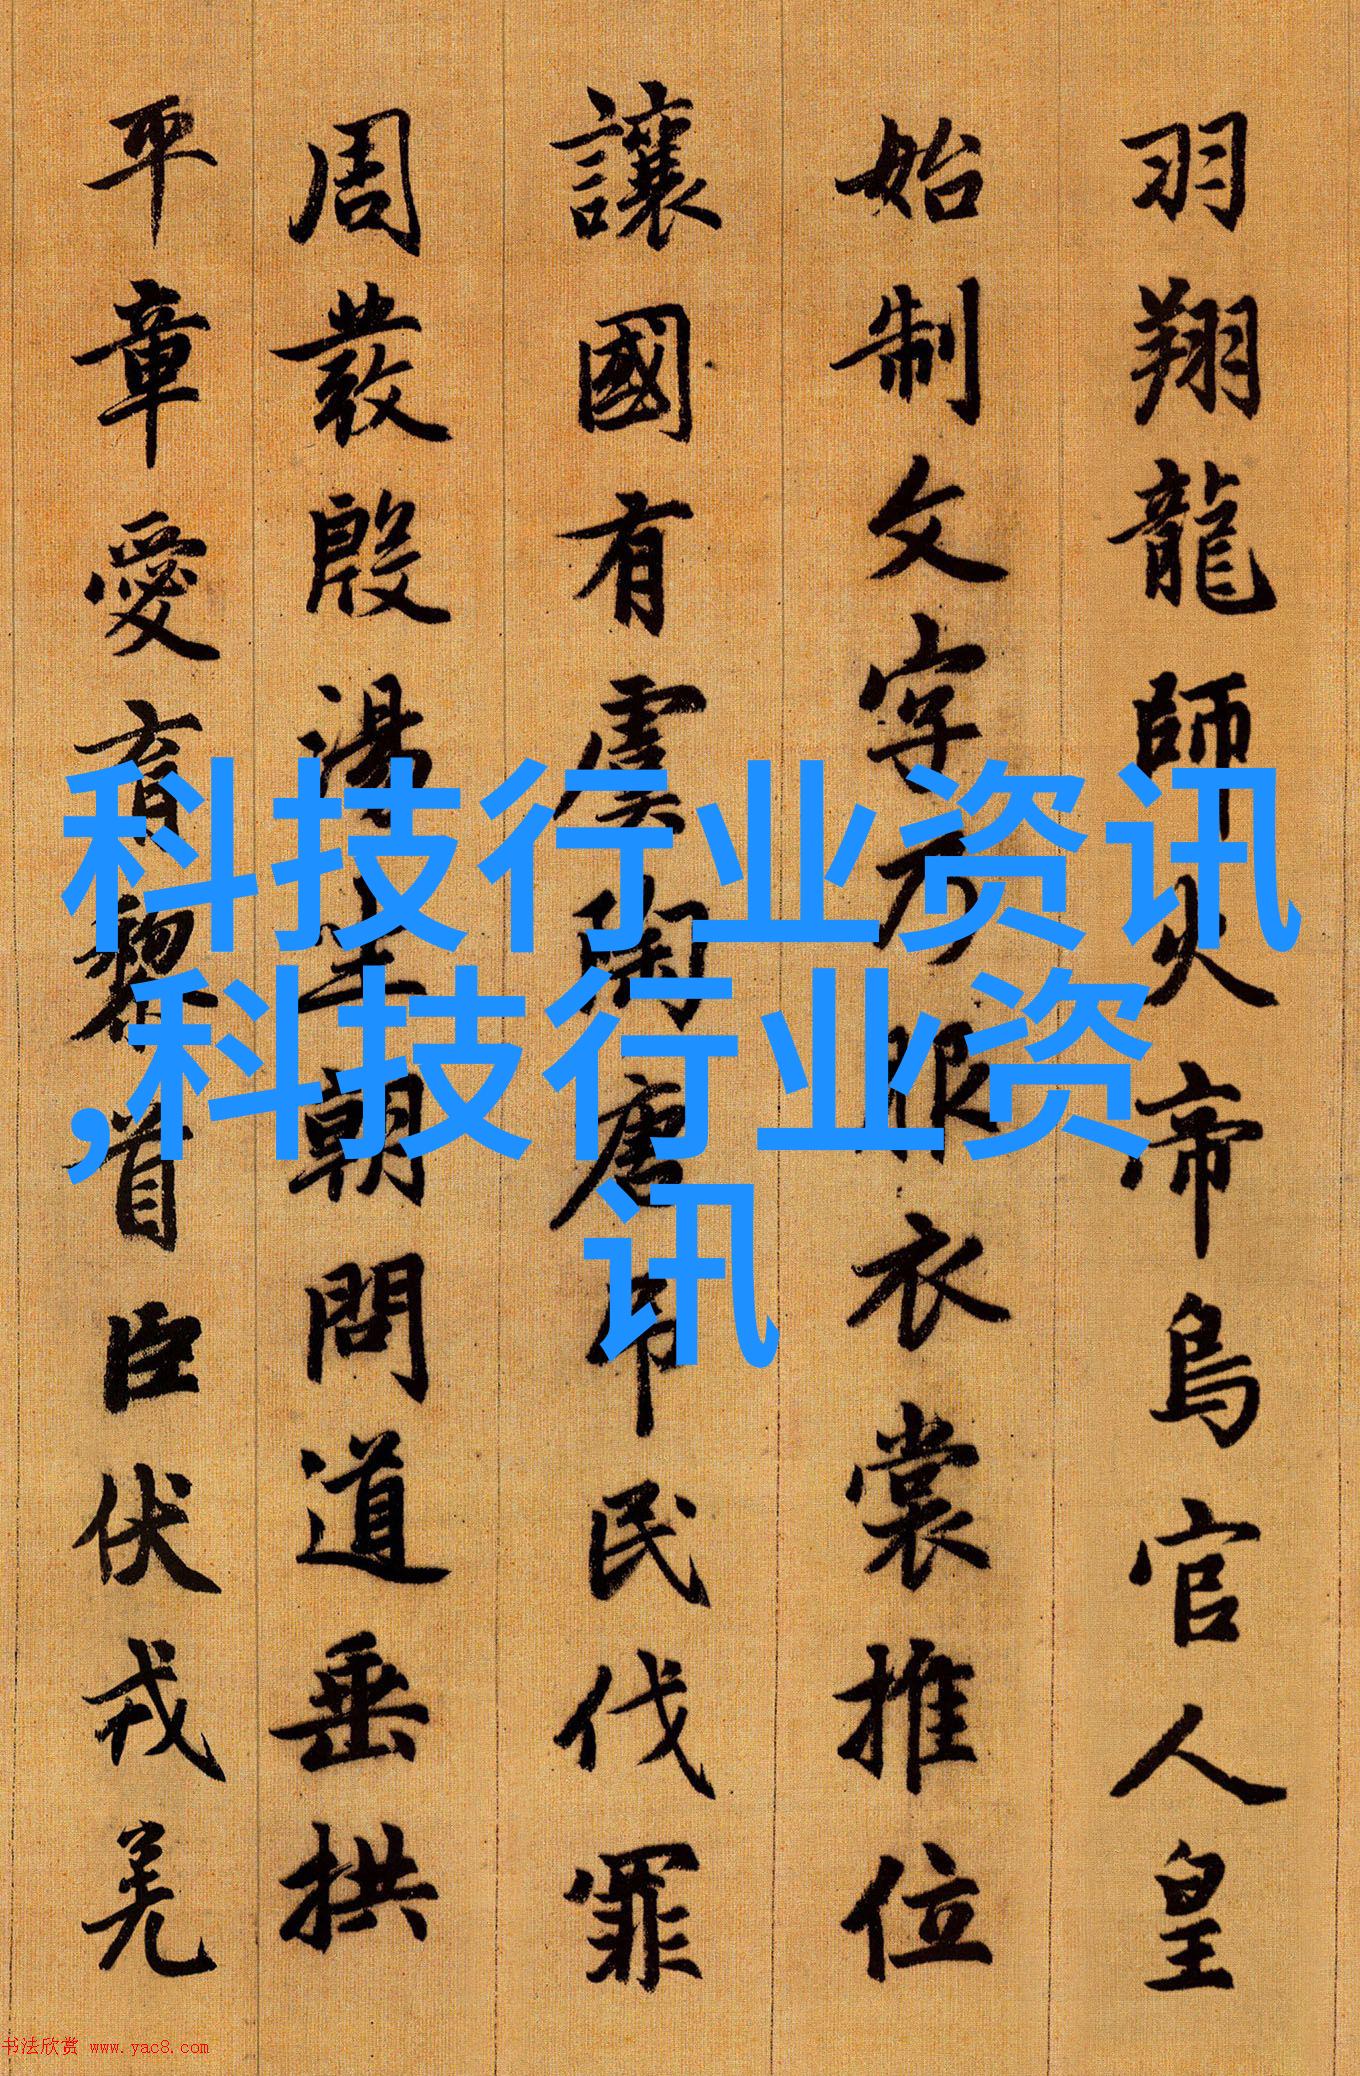 羽翔龍師火帝鳥官人皇
始制文字乃服衣裳推位
讓國有虞陶唐弔民伐罪
周發殷湯坐朝問道垂拱
平章愛育黎首臣伏戎羌
科技行业资讯
,科技行业资
讯
书法欣赏 www.yac8.com